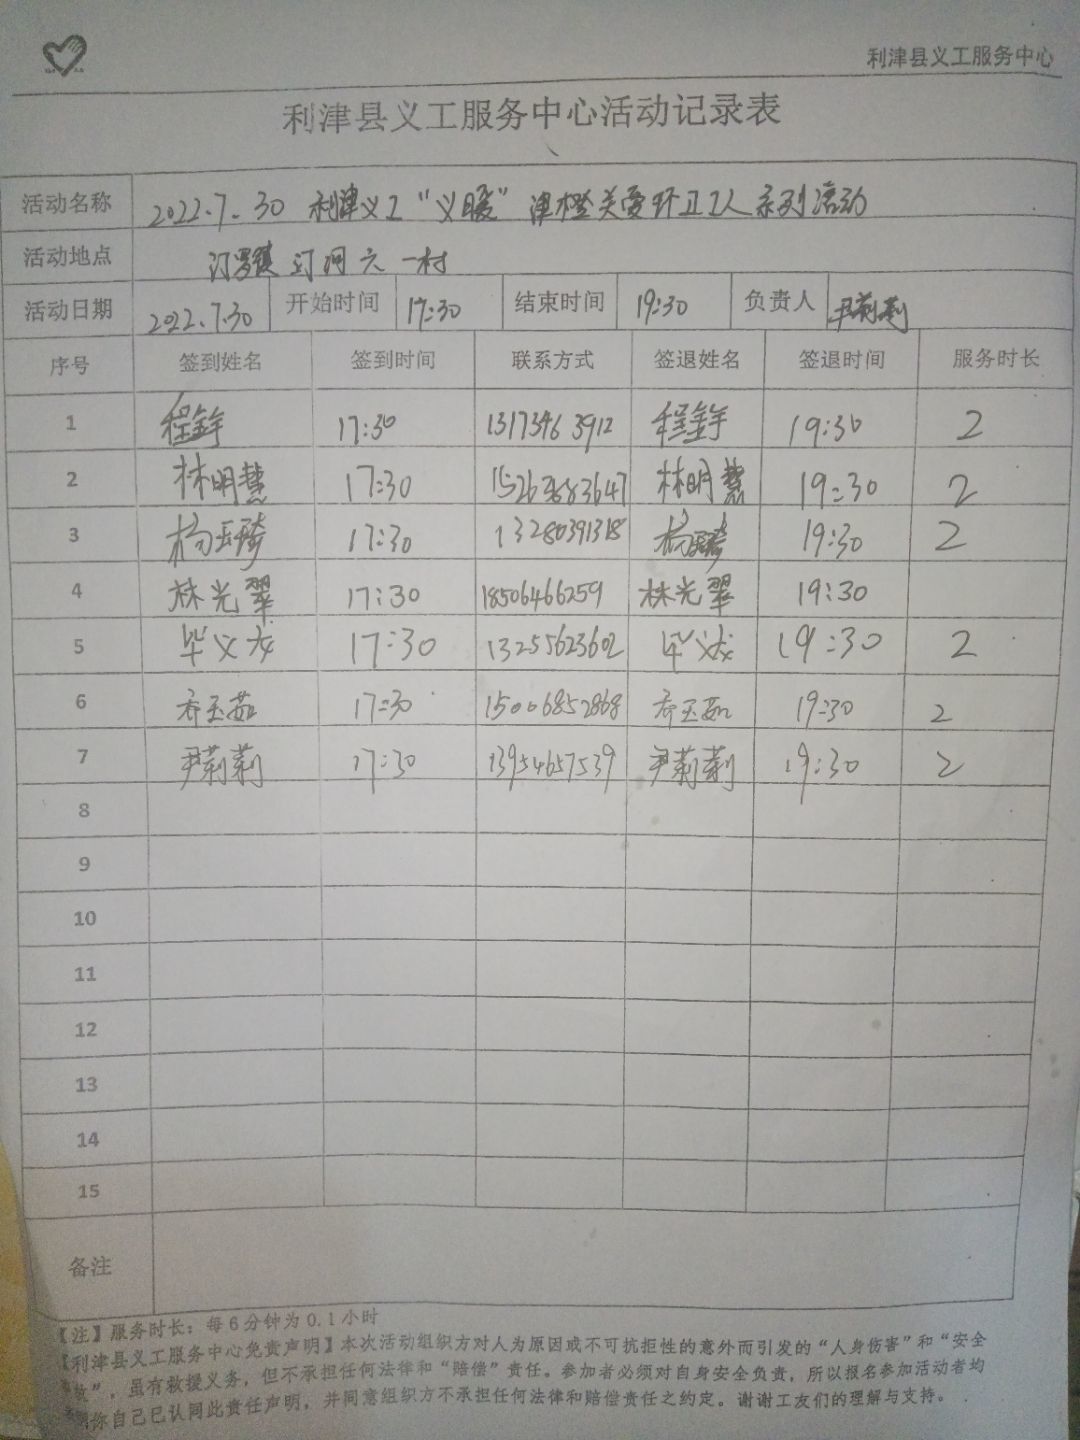 利津县义工服务中心
利津县义工服务中心活动记录表
活动名称 2022.7.30 利津义工“义暖”津橙关爱环卫工人系列活动
活动地点 汀罗镇汀河六一村
活动日期 2022.7.30 开始时间 17:30 结束时间 19:30 负责人 尹莉莉
序号 签到姓名 签到时间 联系方式 签退姓名 签退时间 服务时长
1 17:30 13173463912 19:30 2
2 林明慧 17:30 15263683647 林明慧 19:30 2
3 杨玉琦 17:30 13280391318 19:30 2
4 林光翠 17:30 18506466259 林光翠 19:30
5 毕义友 17:30 13255623602 毕义友 19:30 2
6 乔玉茹 17:30 15006852868 乔玉茹 19:30 2
7 尹莉莉 17:30 13954657539 尹莉莉 19:30 2
8
9
10
11
12
13
14
15
备注
【注】服务时长：每6分钟为0.1小时
【利津县义工服务中心免责声明】本次活动组织方对人为原因或不可抗拒性的意外而引发的“人身伤害”和“安全
”，虽有救援义务，但不承担任何法律和“赔偿”责任。参加者必须对自身安全负责，所以报名参加活动者均
你自己已认同此责任声明，并同意组织方不承担任何法律和赔偿责任之约定。谢谢工友们的理解与支持。